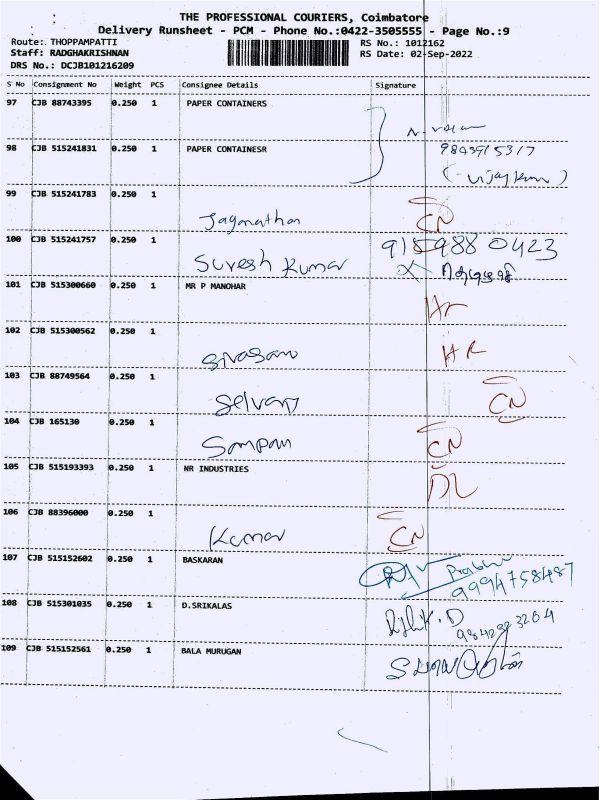 THE PROFESSIONAL COURIERS, Coimbatore
Delivery Runsheet - PCM - Phone No.:0422-3505555 - Page No.:9
Route: THOPPAMPATTI
RS No.: 1012162
Staff: RADGHAKRISHNAN
RS Date: 02-Sep-2022
DRS No.: DCJB101216209
S No Consignment No Weight PCS Consignee Details Signature
97 CJB 88743395 0.250 1 PAPER CONTAINERS
98 CJB 515241831 0.250 1 PAPER CONTAINESR
9843915317
(vijaykumar)
99 CJB 515241783 0.250 1
Jaganathan CN
100 CJB 515241757 0.250 1 9159880423
Suresh Kumar
101 CJB 515300660 0.250 1 MR P MANOHAR
Hr
102 CJB 515300562 0.250 1
Sivasam HR
103 CJB 88749564 0.250 1
Selvaraj CN
104 CJB 165130 0.250 1
Sampan CN
105 CJB 515193393 0.250 1 NR INDUSTRIES
DL
106 CJB 88396000 0.250 1
Kumar CN
107 CJB 515152602 0.250 1 BASKARAN
Prabhu
9994758487
108 CJB 515301035 0.250 1 D.SRIKALAS
109 CJB 515152561 0.250 1 BALA MURUGAN